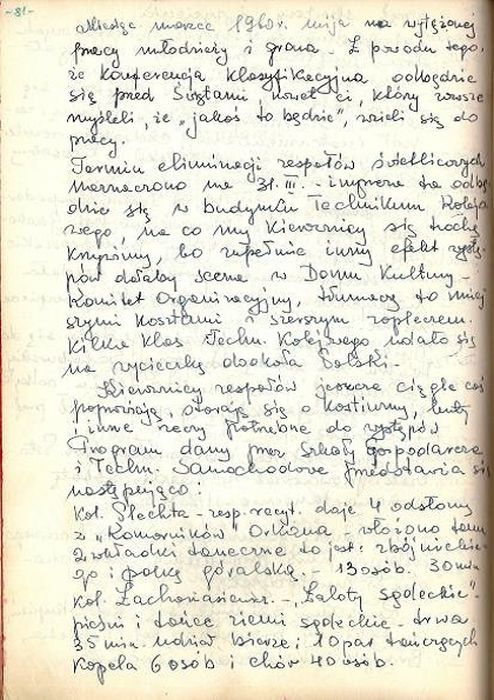 -81-
Miesiąc marzec 1960r. mija na wytężonej
pracy młodzieży i grona. Z powodu tego,
że Konferencja klasyfikacyjna odbędzie
się przed Świętami, nawet ci, którzy zawsze
myśleli, że „jakoś to będzie”, wzięli się do
pracy.
Termin eliminacji zespołów świetlicowych
wyznaczono na 31.III. - impreza ta odbę
dzie się w budynku Technikum Kolejo
wego, na co my Kierownicy się trochę
krzywimy, bo zupełnie inny efekt wystę-
pów dałaby scena w Domu Kultury -
Komitet Organizacyjny, tłumaczy to mniej
szymi kosztami i szerszym zapleczem.
Kilka klas Techn. Kolejowego udało się
na wycieczkę dookoła Polski -
Kierownicy zespołów jeszcze ciągle coś
poprawiają, starają się o kostiumy, buty
i inne rzeczy potrzebne do występów
Program dany przez Szkołę Gospodarcza
i Techn. Samochodowe przedstawia się
następująco:
kol. Plechta - resp. recyt. daje 4 odsłony
z „Komorników” Orkana - włożono tam
2 wkładki taneczne to jest: zbójnickie-
go i polkę góralską. - 13 osób. 30 min
kol. Zachariasiew. - „Zaloty sądeckie” -
pieśni i tańce ziemi sądeckie - trwa
35 min. udział bierze: 10 par tańczących
Kapela 6 osób i chór 40 osób.